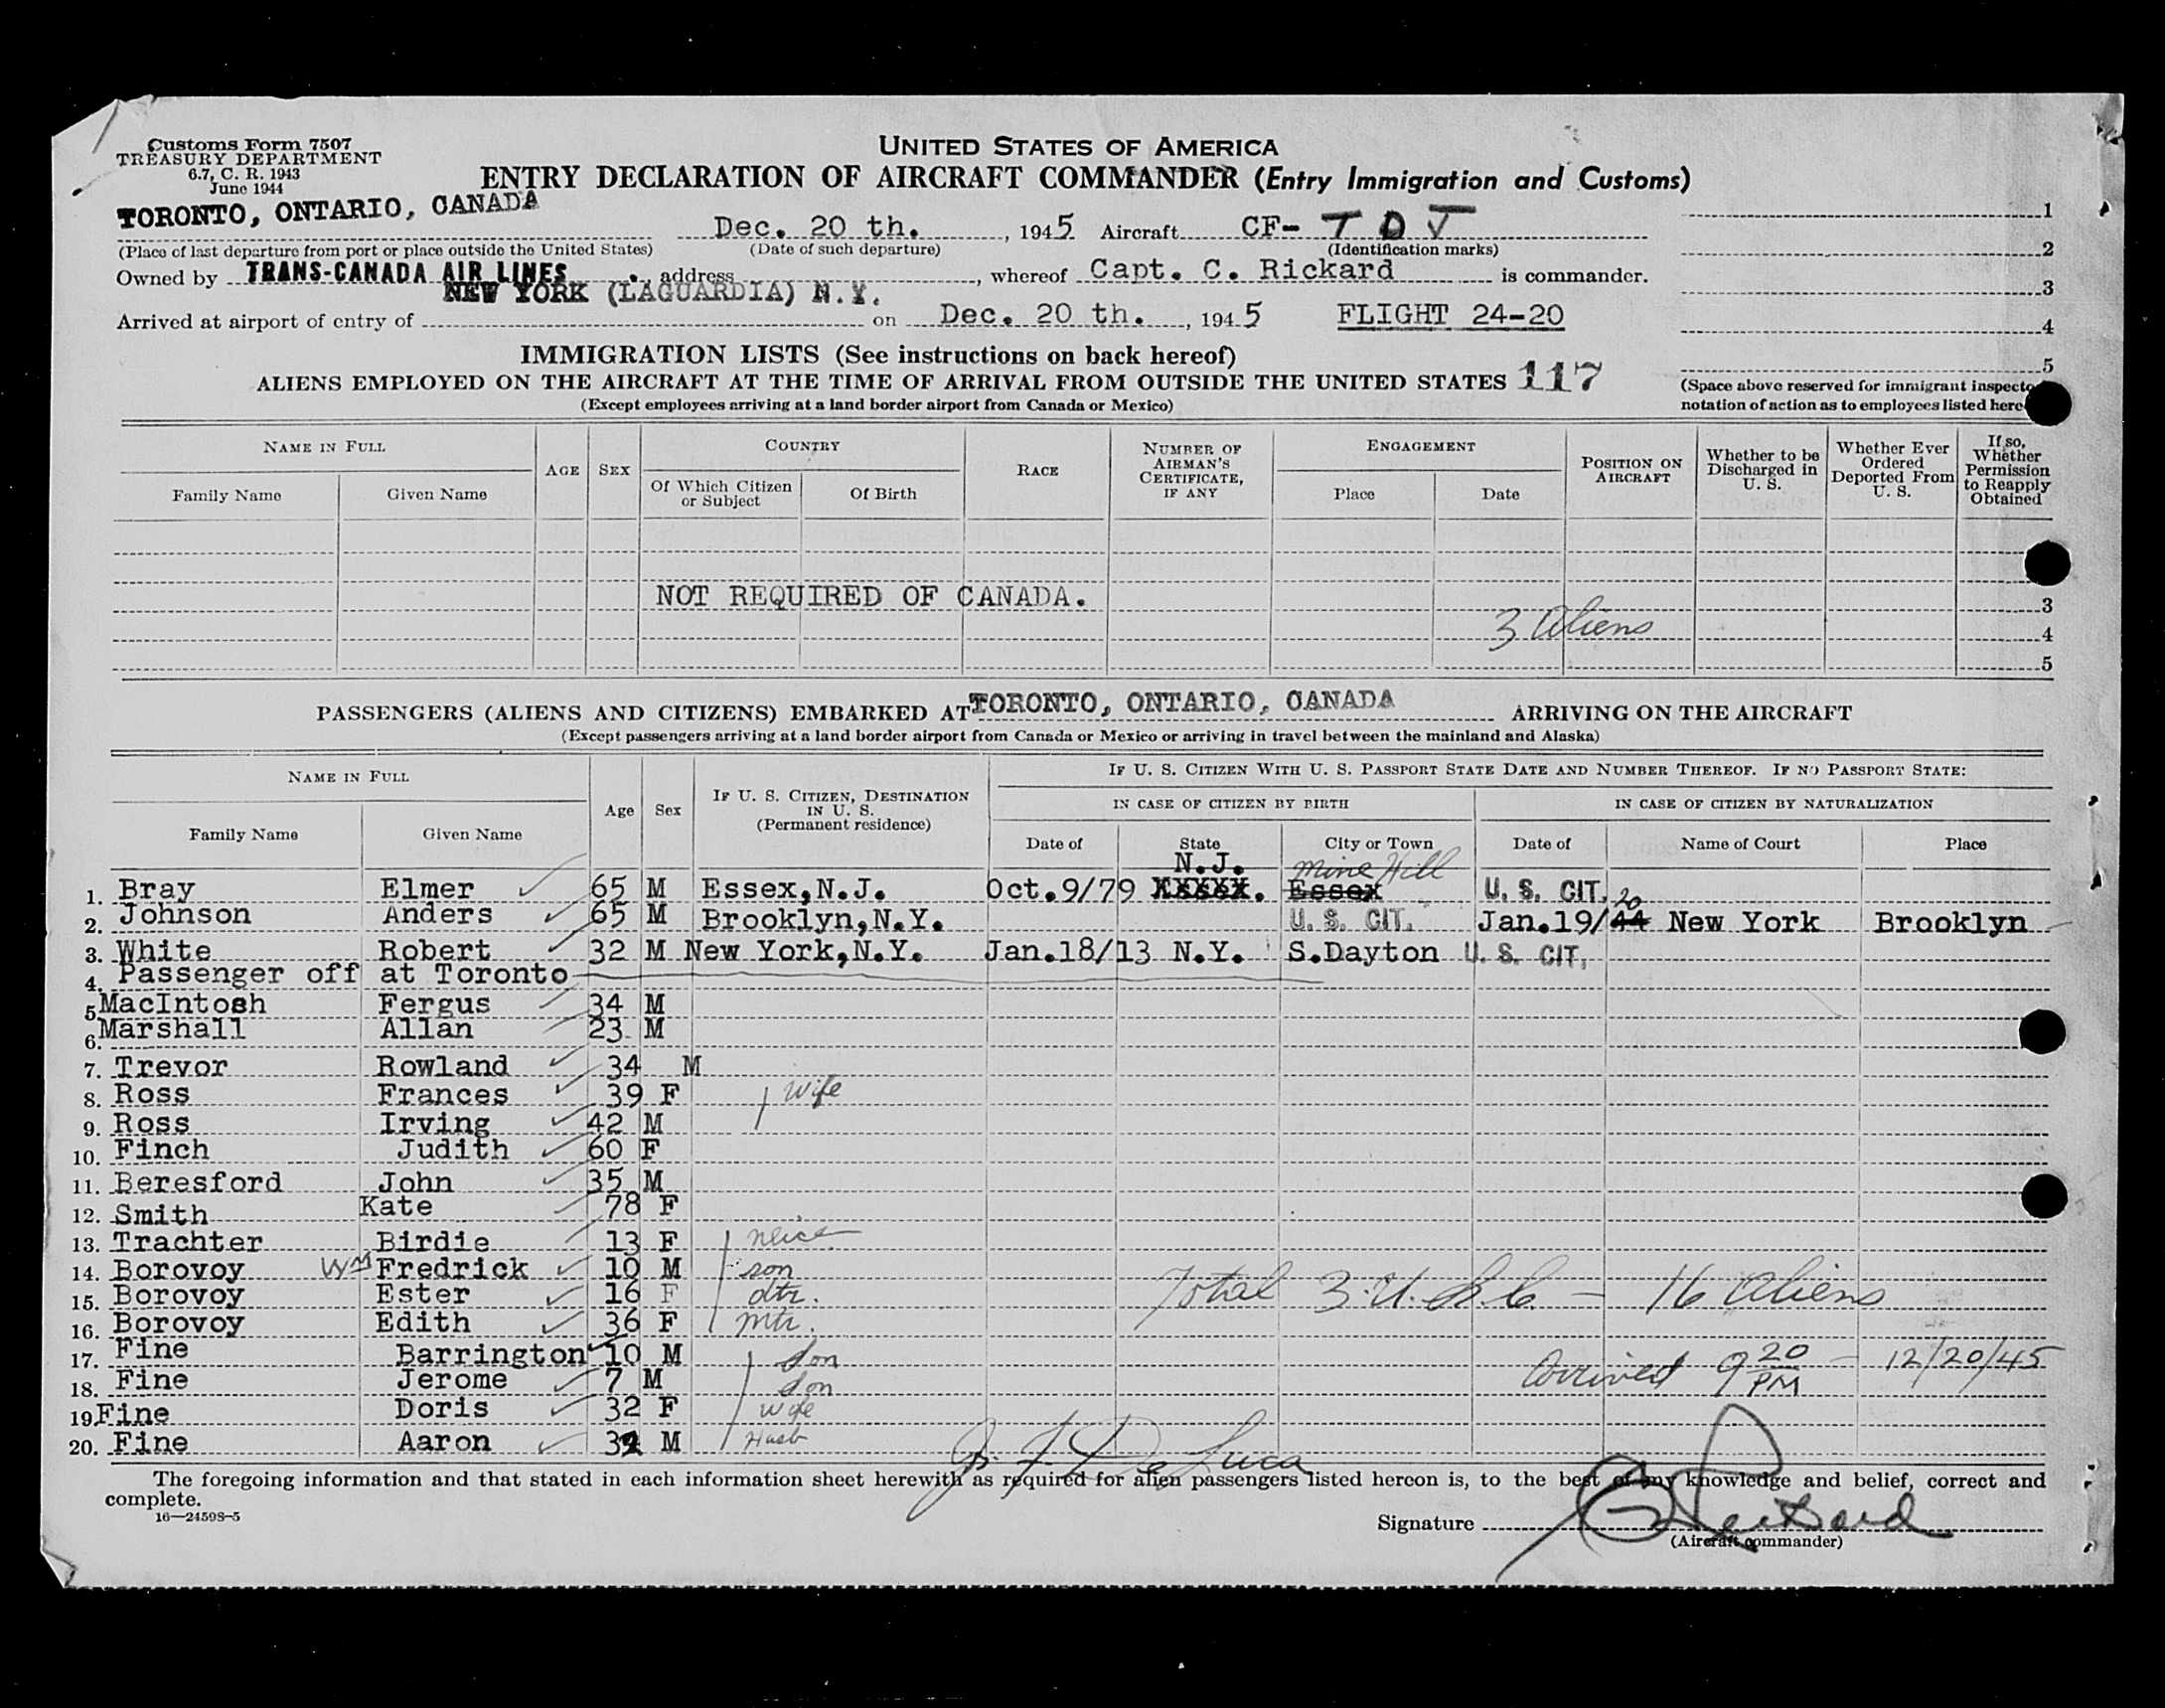 Customs Form 7507
TREASURY DEPARTMENT
6.7, C. R. 1943
June 1944
UNITED STATES OF AMERICA
ENTRY DECLARATION OF AIRCRAFT COMMANDER (Entry Immigration and Customs)
TORONTO, ONTARIO, CANADA Dec. 20 th. , 1945 Aircraft CF- T D J 1
(Place of last departure from port or place outside the United States) (Date of such departure) (Identification marks) 2
Owned by TRANS-CANADA AIR LINES , address , whereof Capt. C. Rickard is commander. 3
NEW YORK (LAGUARDIA) N.Y.
Arrived at airport of entry of on Dec. 20 th. , 1945 FLIGHT 24-20 4
IMMIGRATION LISTS (See instructions on back hereof) 5
ALIENS EMPLOYED ON THE AIRCRAFT AT THE TIME OF ARRIVAL FROM OUTSIDE THE UNITED STATES 117
(Space above reserved for immigrant inspecto
notation of action as to employees listed here
(Except employees arriving at a land border airport from Canada or Mexico)
NAME IN FULL
Family Name Given Name
AGE SEX
COUNTRY
Of Which Citizen or Subject Of Birth
RACE
NUMBER OF AIRMAN'S CERTIFICATE, IF ANY
ENGAGEMENT
Place Date
POSITION ON AIRCRAFT
Whether to be Discharged in U. S.
Whether Ever Ordered Deported From U. S.
If so, Whether Permission to Reapply Obtained
NOT REQUIRED OF CANADA. 3
3 Aliens 4
5
PASSENGERS (ALIENS AND CITIZENS) EMBARKED AT TORONTO, ONTARIO, CANADA ARRIVING ON THE AIRCRAFT
(Except passengers arriving at a land border airport from Canada or Mexico or arriving in travel between the mainland and Alaska)
NAME IN FULL
Family Name Given Name
Age Sex
IF U. S. CITIZEN, DESTINATION IN U. S. (Permanent residence)
IF U. S. CITIZEN WITH U. S. PASSPORT STATE DATE AND NUMBER THEREOF. IF NO PASSPORT STATE:
IN CASE OF CITIZEN BY BIRTH IN CASE OF CITIZEN BY NATURALIZATION
Date of State City or Town Date of Name of Court Place
N.J. Mine Hill
1. Bray Elmer 65 M Essex,N.J. Oct.9/79 XXXXX. Essex U. S. CIT.
20
2. Johnson Anders 65 M Brooklyn,N.Y. U. S. CIT. Jan.19/44 New York Brooklyn
3. White Robert 32 M New York,N.Y. Jan.18/13 N.Y. S.Dayton U. S. CIT.
4. Passenger off at Toronto
5 MacIntosh Fergus 34 M
6. Marshall Allan 23 M
7. Trevor Rowland 34 M
8. Ross Frances 39 F wife
9. Ross Irving 42 M
10. Finch Judith 60 F
11. Beresford John 35 M
12. Smith Kate 78 F
13. Trachter Birdie 13 F neice
14. Borovoy Wm Fredrick 10 M son
15. Borovoy Ester 16 F dtr. Total 3 U.S.C. - 16 Aliens
16. Borovoy Edith 36 F Mtr.
17. Fine Barrington 10 M Son Arrived 9 20 PM - 12/20/45
18. Fine Jerome 7 M Son
19. Fine Doris 32 F wife
20. Fine Aaron M Husb
De Luca
The foregoing information and that stated in each information sheet herewith as required for alien passengers listed hereon is, to the best of my knowledge and belief, correct and
complete.
16—24598-5
Signature C Rickard
(Aircraft commander)